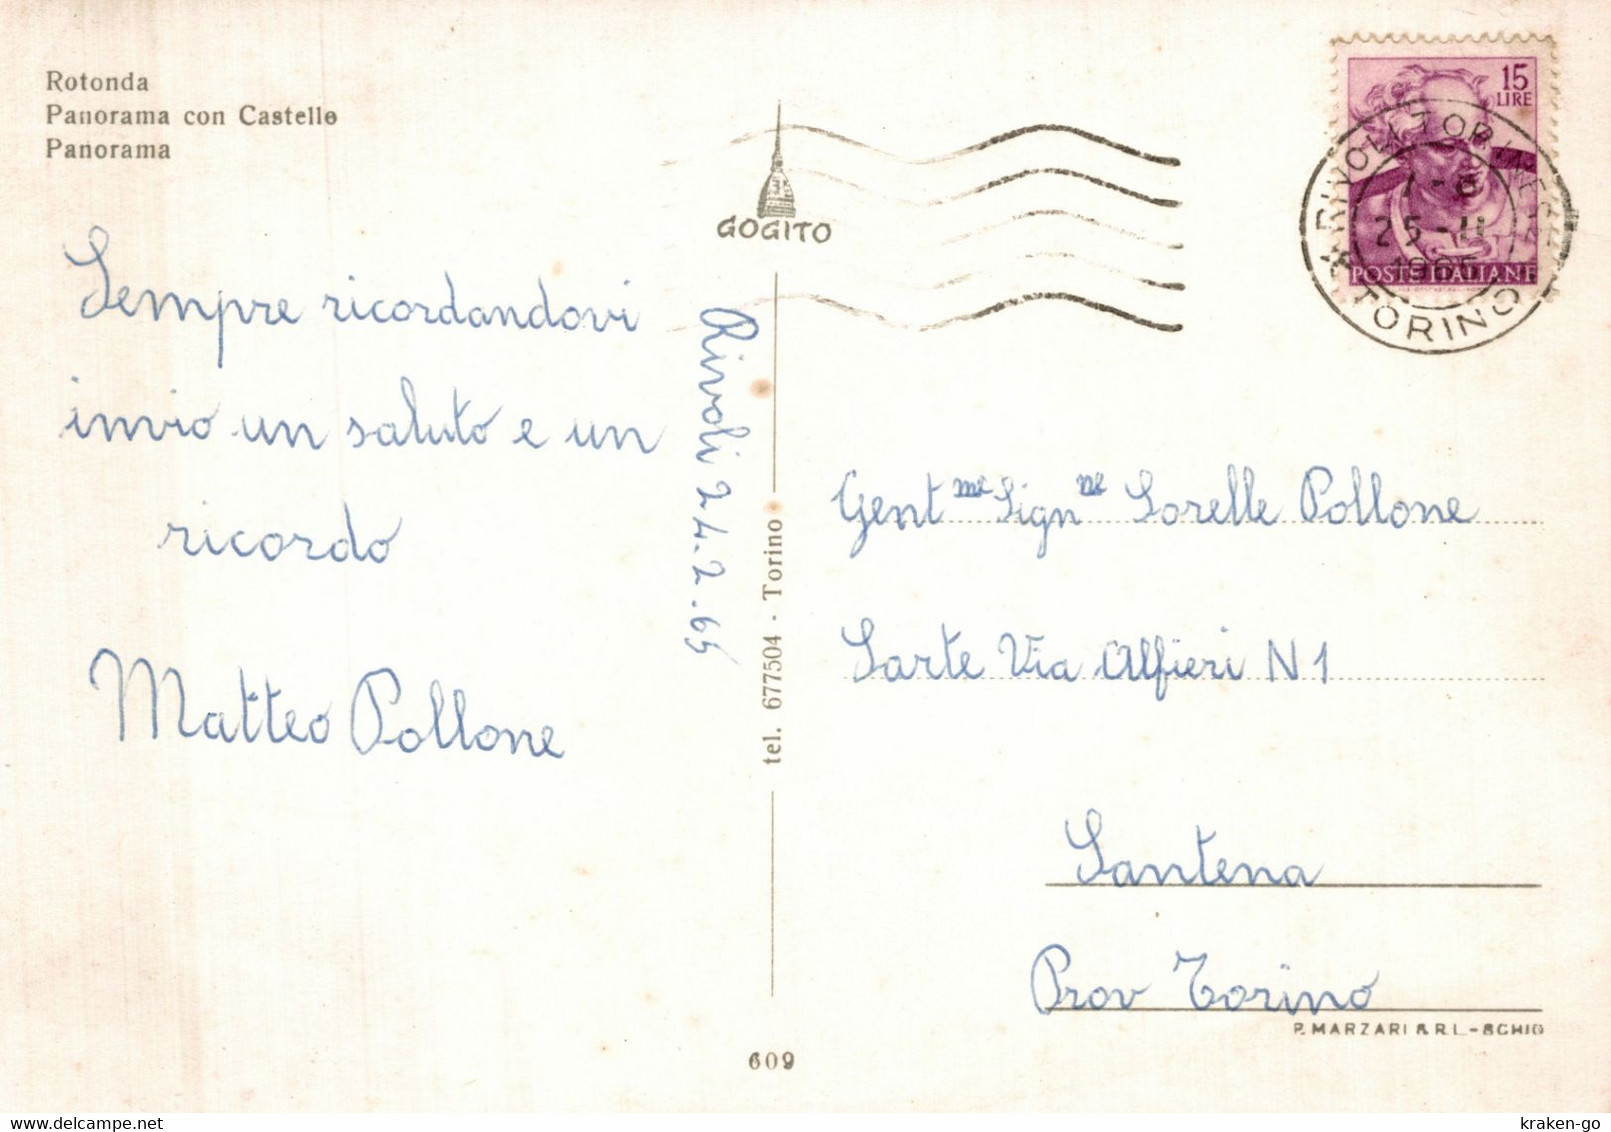 Rotonda
Panorama con Castello
Panorama
GOGITO
15
LIRE
POSTE ITALIANE
7-8
25-II
1965
TORINO
Sempre ricordandovi
invio un saluto e un
ricordo
Matteo Pollone
Rivoli 24.2.65
tel. 677504 - Torino
Gent me Sign ne Sorelle Pollone
Sarte Via Alfieri N 1
Santena
Prov Torino
P. MARZARI S.R.L. - SCHIO
609
kraken-go